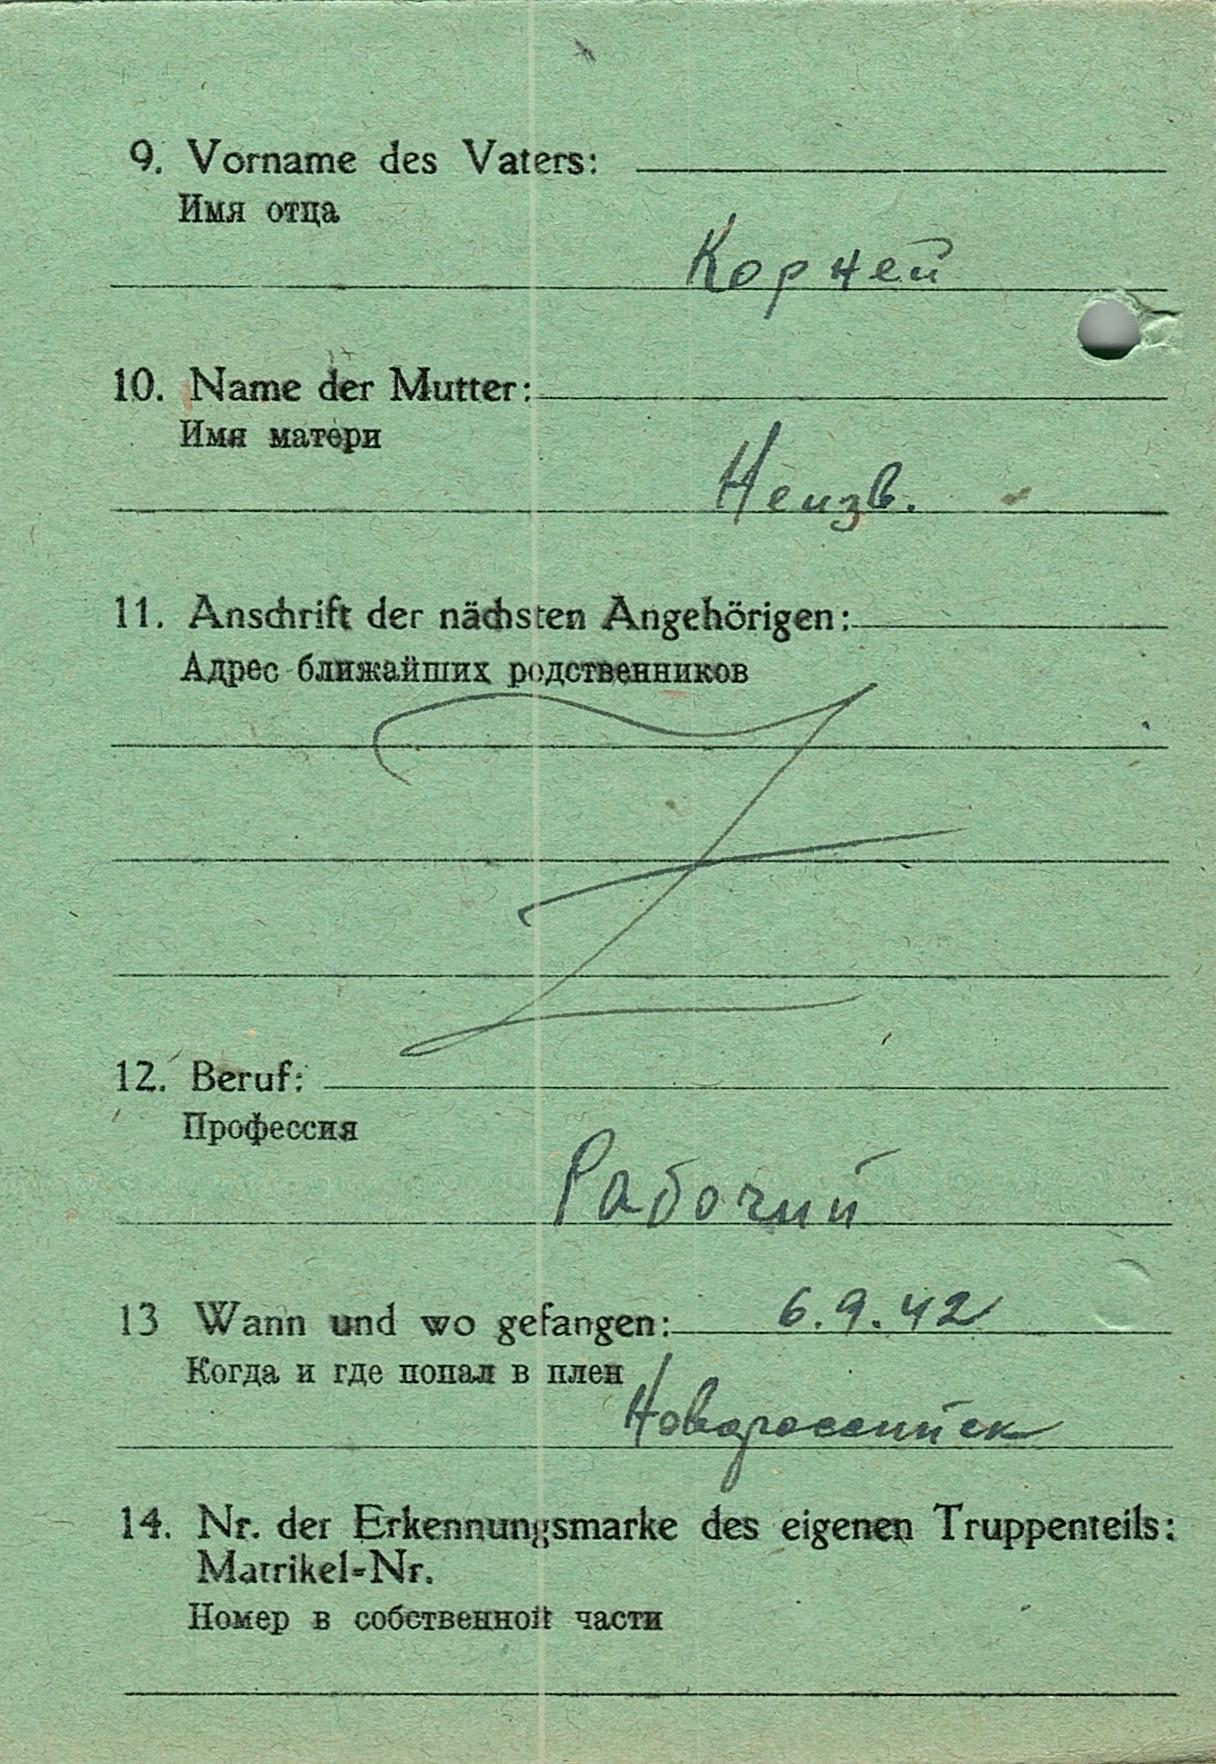 9. Vorname des Vaters:
Имя отца
Корней
10. Name der Mutter:
Имя матери
Неизв.
11. Anschrift der nächsten Angehörigen:
Адрес ближайших родственников
12. Beruf:
Профессия
Рабочий
13 Wann und wo gefangen: 6.9.42
Когда и где попал в плен
Новороссийск
14. Nr. der Erkennungsmarke des eigenen Truppenteils:
Matrikel-Nr.
Номер в собственной части